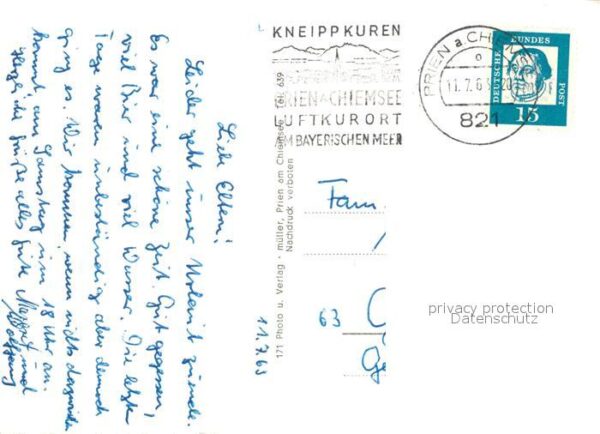 Liebe Eltern!
Leider geht unser Urlaub zu Ende.
Es war eine schöne Zeit. Gut gegessen,
viel Bier und viel Wasser. Die letzten
Tage waren unbeständig aber dennoch
ging es. Wir kommen, wenn nichts dazwischen
kommt, am Samstag um 18 Uhr an.
Herzliche Grüße alles gute Margret und
Wolfgang
11.7.63
171 Photo u. Verlag · müller, Prien am Chiemsee Tel. 639
Nachdruck verboten
KNEIPPKUREN
PRIEN a CHIEMSEE
LUFTKURORT
AM BAYERISCHEN MEER
PRIEN a CHIEMSEE
11.7.63
821
DEUTSCHE BUNDES POST
15
Fam.
63
privacy protection
Datenschutz